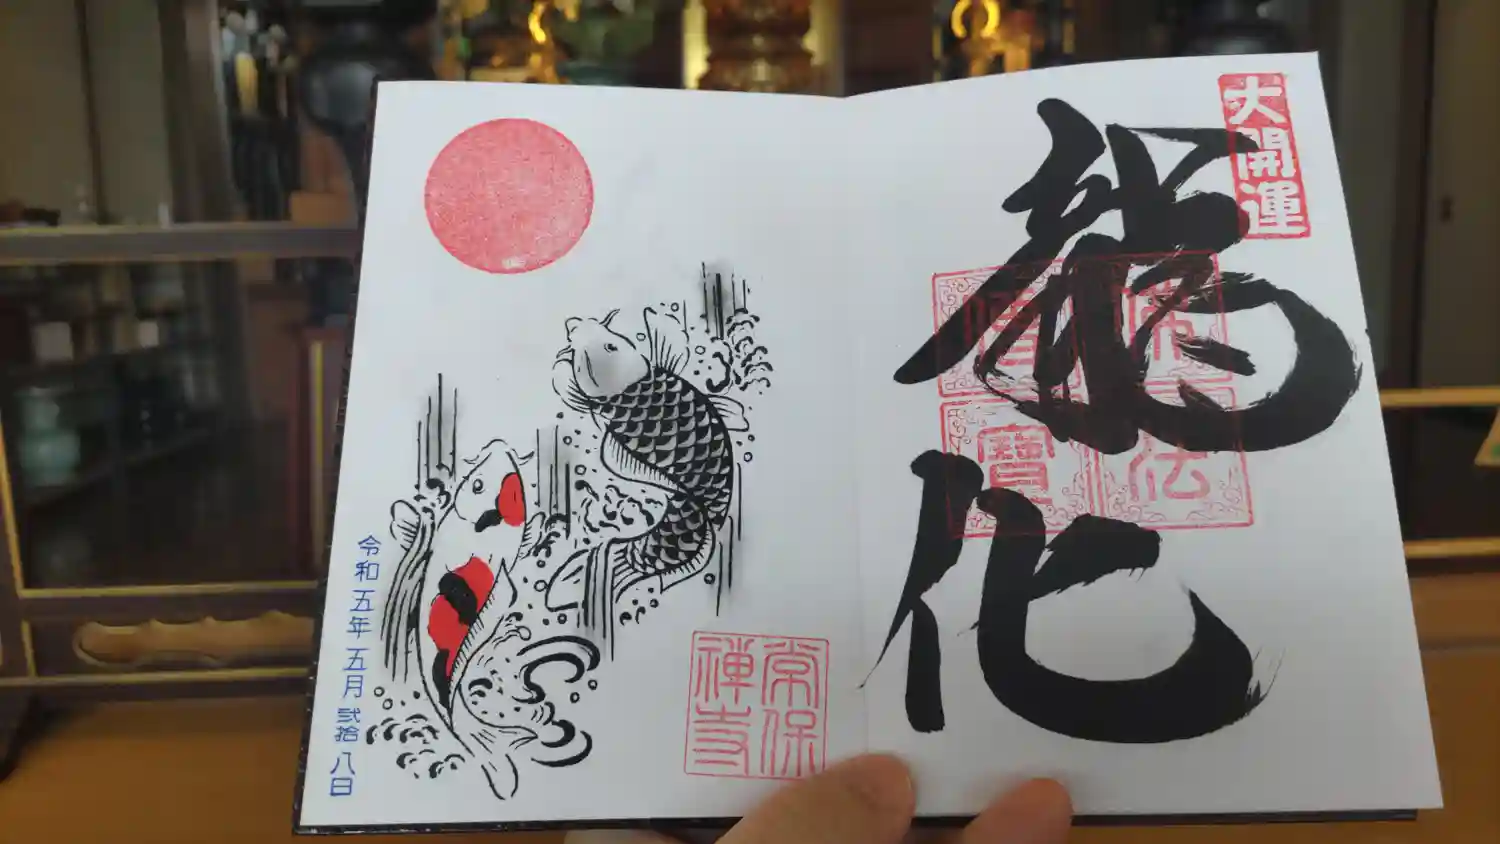 大開運
龍化
佛法
僧寶
常保
禪寺
令和五年五月弐拾八日